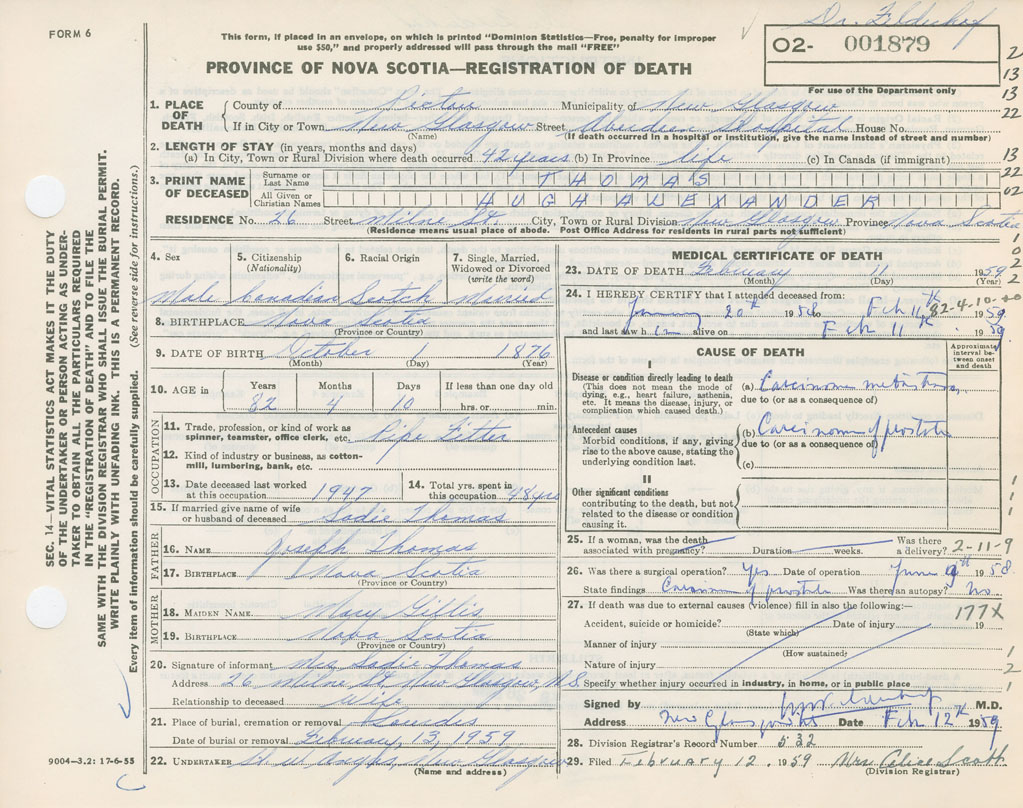 FORM 6
This form, if placed in an envelope, on which is printed "Dominion Statistics—Free, penalty for improper
use $50," and properly addressed will pass through the mail "FREE"
PROVINCE OF NOVA SCOTIA—REGISTRATION OF DEATH
O2- 001879
For use of the Department only
SEC. 14—VITAL STATISTICS ACT MAKES IT THE DUTY
OF THE UNDERTAKER OR PERSON ACTING AS UNDER-
TAKER TO OBTAIN ALL THE PARTICULARS REQUIRED
IN THE "REGISTRATION OF DEATH" AND TO FILE THE
SAME WITH THE DIVISION REGISTRAR WHO SHALL ISSUE THE BURIAL PERMIT.
WRITE PLAINLY WITH UNFADING INK. THIS IS A PERMANENT RECORD.
Every item of information should be carefully supplied. (See reverse side for instructions.)
1. PLACE OF DEATH { County of Pictou Municipality of New Glasgow
If in City or Town New Glasgow Street Aberdeen Hospital House No.
(Name) (If death occurred in a hospital or institution, give the name instead of street and number)
2. LENGTH OF STAY (in years, months and days)
(a) In City, Town or Rural Division where death occurred 42 years (b) In Province life (c) In Canada (if immigrant)
3. PRINT NAME OF DECEASED { Surname or Last Name THOMAS
All Given or Christian Names HUGH ALEXANDER
RESIDENCE No. 26 Street Milne St. City, Town or Rural Division New Glasgow Province Nova Scotia
(Residence means usual place of abode. Post Office Address for residents in rural parts not sufficient)
4. Sex 5. Citizenship (Nationality) 6. Racial Origin 7. Single, Married, Widowed or Divorced (write the word)
Male Canadian Scotch Married
8. BIRTHPLACE Nova Scotia
(Province or Country)
9. DATE OF BIRTH October 1 1876
(Month) (Day) (Year)
10. AGE in Years Months Days If less than one day old
82 4 10 hrs. or min.
OCCUPATION
11. Trade, profession, or kind of work as
spinner, teamster, office clerk, etc. Pipe Fitter
12. Kind of industry or business, as cotton-
mill, lumbering, bank, etc.
13. Date deceased last worked at this occupation 1947 14. Total yrs. spent in this occupation 48 yrs
15. If married give name of wife
or husband of deceased Sadie Thomas
FATHER
16. NAME Joseph Thomas
17. BIRTHPLACE Nova Scotia
(Province or Country)
MOTHER
18. MAIDEN NAME Mary Gillis
19. BIRTHPLACE Nova Scotia
(Province or Country)
20. Signature of informant Mrs Sadie Thomas
Address 26 Milne St. New Glasgow, N.S.
Relationship to deceased Wife
21. Place of burial, cremation or removal Lourdes
Date of burial or removal February, 13, 1959
22. UNDERTAKER New Glasgow
(Name and address)
9004—3.2: 17-6-55
MEDICAL CERTIFICATE OF DEATH
23. DATE OF DEATH February 11 1959
(Month) (Day) (Year)
24. I HEREBY CERTIFY that I attended deceased from:
20th 1958 to Feb 11th 1959
82-4-10
and last saw him alive on Feb 11th 1959
CAUSE OF DEATH
Approximate interval between onset and death
I
Disease or condition directly leading to death
(This does not mean the mode of
dying, e.g., heart failure, asthenia,
etc. It means the disease, injury, or
complication which caused death.)
(a) Carcinoma
due to (or as a consequence of)
Antecedent causes
Morbid conditions, if any, giving
rise to the above cause, stating the
underlying condition last.
(b) Carcinoma of prostate
due to (or as a consequence of)
(c)
II
Other significant conditions
contributing to the death, but not
related to the disease or condition
causing it.
25. If a woman, was the death
associated with pregnancy? Duration weeks. Was there a delivery? 2-11-9
26. Was there a surgical operation? Yes Date of operation June 1958
State findings Carcinoma of prostate Was there an autopsy? No
27. If death was due to external causes (violence) fill in also the following:—
177X
Accident, suicide or homicide? Date of injury 19
(State which)
Manner of injury
(How sustained)
Nature of injury
Specify whether injury occurred in industry, in home, or in public place
Signed by M.D.
Address New Glasgow NS Date Feb 12th 1959
28. Division Registrar's Record Number 532
29. Filed February 12 1959 Mrs Celice Scott
(Division Registrar)
2
13
13
22
13
22
02
1
0
2
2
1
1
1
1
2
1